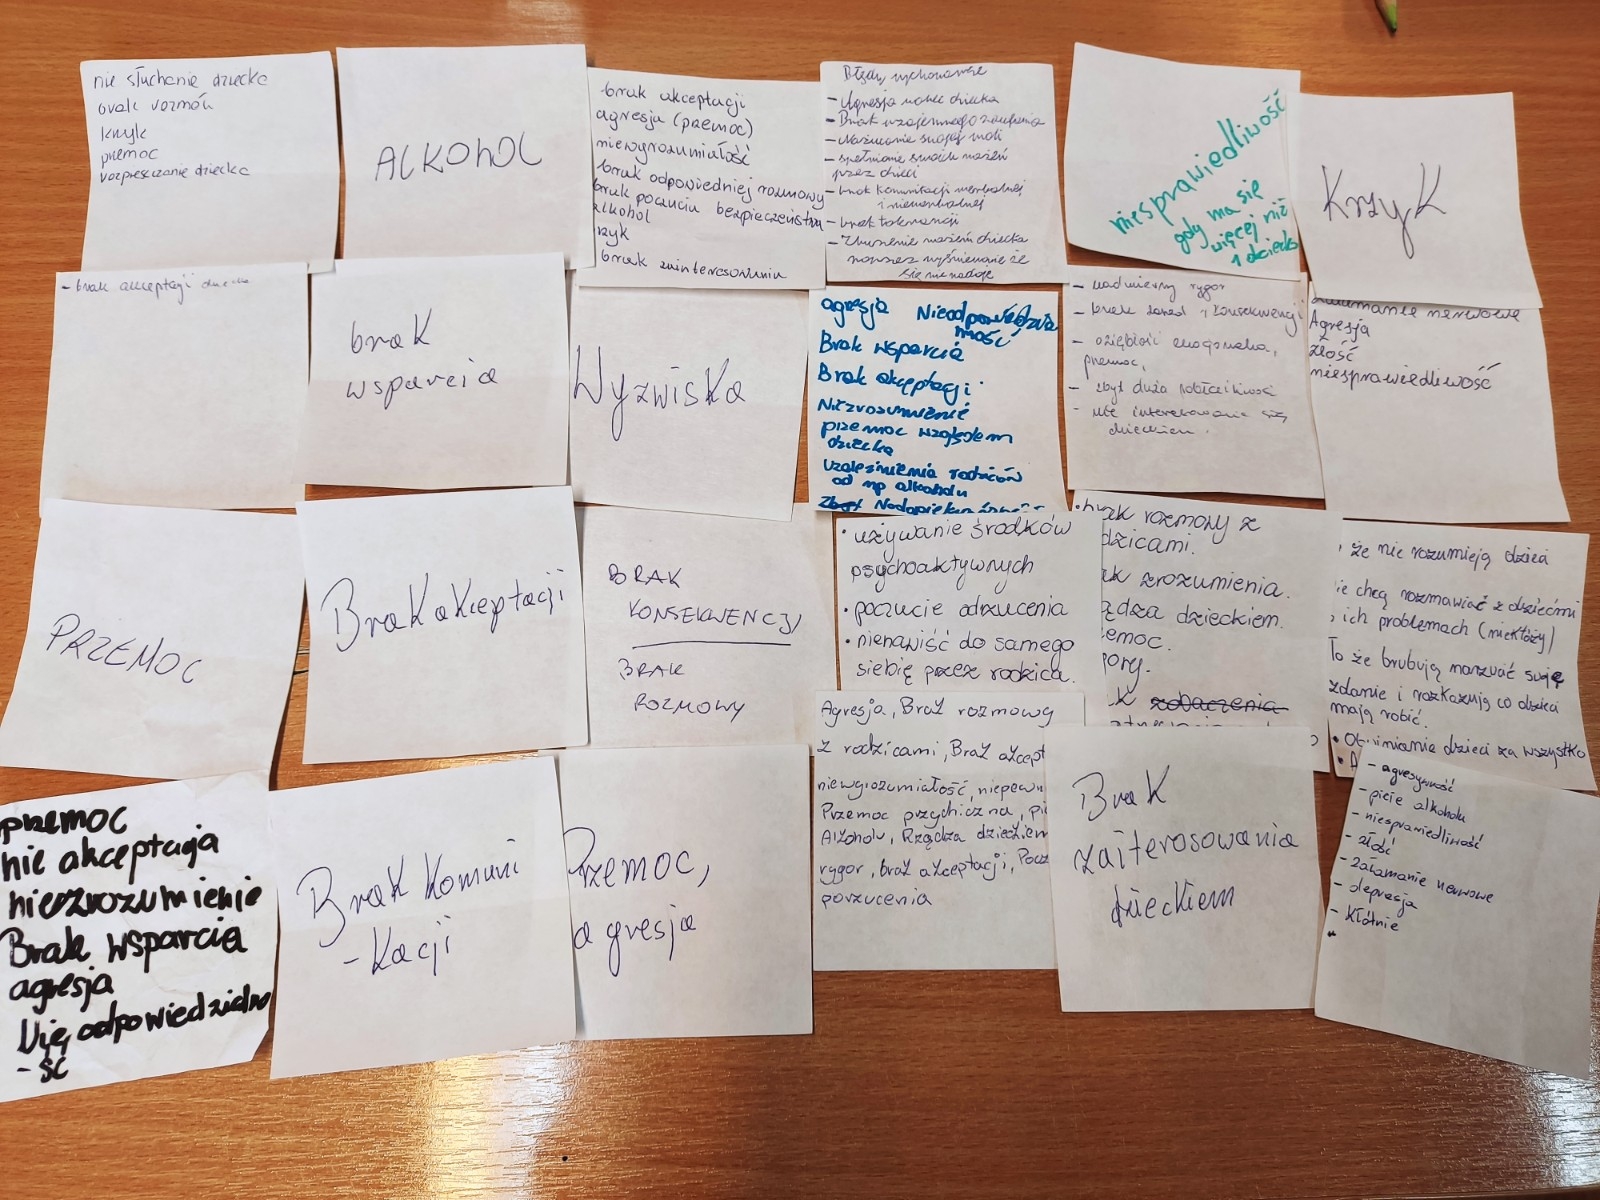 nie słuchanie dziecka
brak rozmów
krzyk
przemoc
rozpieszczanie dziecka
ALKOHOL
brak akceptacji
agresja (przemoc)
niewyrozumiałość
brak odpowiedniej rozmowy
brak poczucia bezpieczeństwa
alkohol
brak zainteresowania
Błędy wychowawcze
- Agresja wobec dziecka
- Brak wzajemnego zaufania
- Narzucanie swojej woli
- spełnianie swoich marzeń
przez dzieci
- brak komunikacji werbalnej
i niewerbalnej
- brak tolerancji
- Zburzenie marzeń dziecka
poprzez wyśmienianie że
się nie nadaje
niesprawiedliwość
gdy ma się
więcej niż
1 dziecko
Krzyk
- brak akceptacji dziecka
brak
wsparcia
Wyzwiska
agresja Nieodpowiedzia
lność
Brak wsparcia
Brak akceptacji
Niezrozumienie
przemoc względem
dziecka
Uzależnienia rodziców
od np alkoholu
- nadmierny rygor
- brak zasad i konsekwencji
- oziębłość emocjonalna,
przemoc,
- zbyt duża pobłażliwość
- nie interesowanie się
dzieckiem.
nerwowe
Agresja
złość
niesprawiedliwość
PRZEMOC
Brak akceptacji
BRAK
KONSEKWENCJI
BRAK
ROZMOWY
• używanie środków
psychoaktywnych
• poczucie odrzucenia
• nienawiść do samego
siebie przez rodzica.
rozmowy z
zrozumienia.
dzieckiem.
zobaczenia
że nie rozumieją dzieci
chcą rozmawiać z dziećmi
ich problemach (niektórzy)
To że brubują narzucać swoje
zdanie i rozkazują co dzieci
mają robić.
dzieci za wszystko
przemoc
nie akceptacja
niezrozumienie
Brak wsparcia
agresja
- ść
Brak Komuni
- kacji
Przemoc,
agresja
Agresja, Brak rozmowy
z rodzicami, Brak akcept
niewyrozumiałość, niepewn
Przemoc psychiczna, pi
Alkoholu, Rządza dzieckiem
rygor, brak akceptacji, Pocz
porzucenia
Brak
zaiterosowania
dzieckiem
- agresywność
- picie alkoholu
- niesprawiedliwość
- złość
- załamanie nerwowe
- depresja
- kłótnie